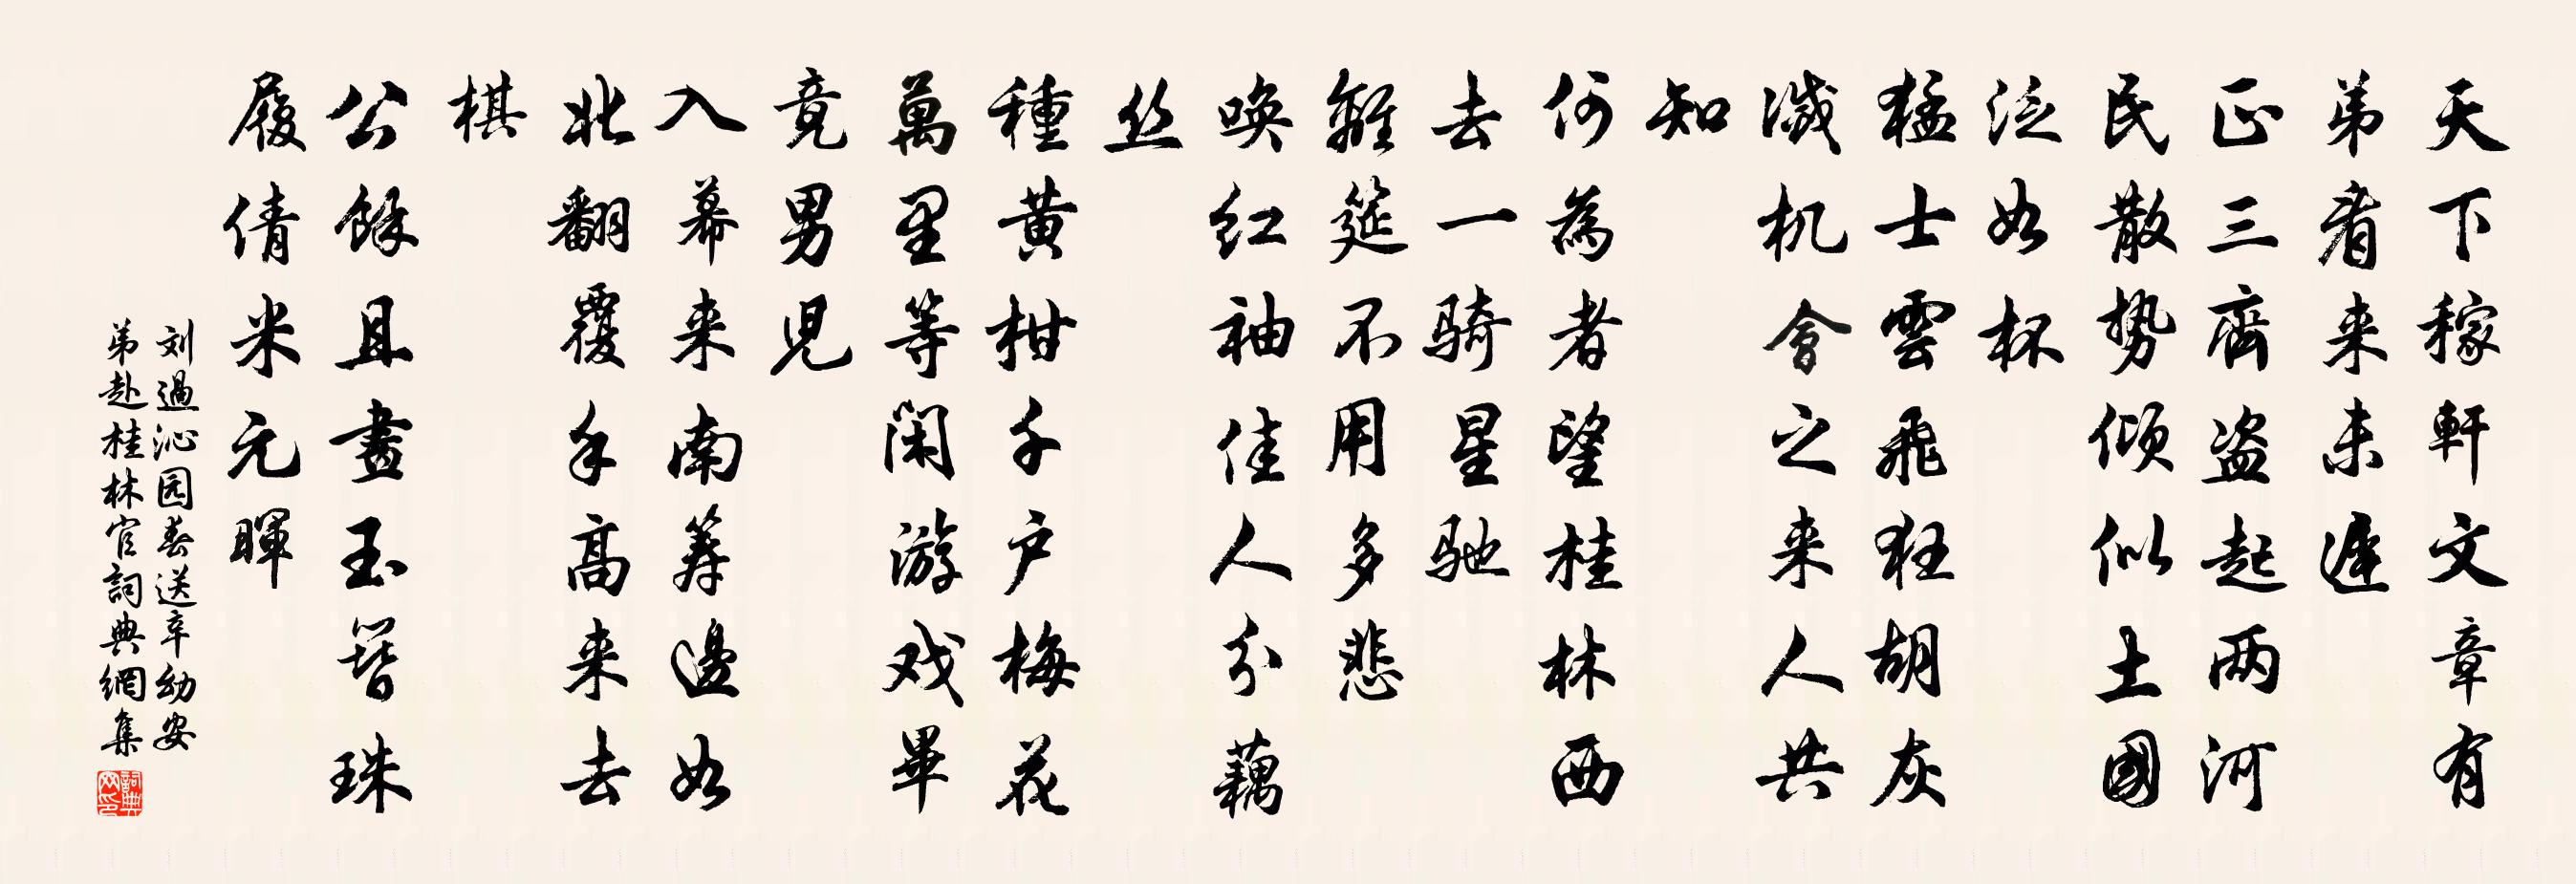 天下稼軒文章有
弟看来未遲
正三齊盗起两河
民散势倾似土國
泛如杯
猛士雲飛狂胡灰
滅机會之来人共
知
何為者望桂林西
去一骑星驰
離筵不用多悲
唤红袖佳人分藕
丝
種黄柑千户梅花
萬里等闲游戏畢
竟男児
入幕来南筹邊如
北翻覆手高来去
棋
公餘且畫玉簪珠
履倩米元暉
刘過沁园春送辛幼安
弟赴桂林官詞典網集
詞典网印